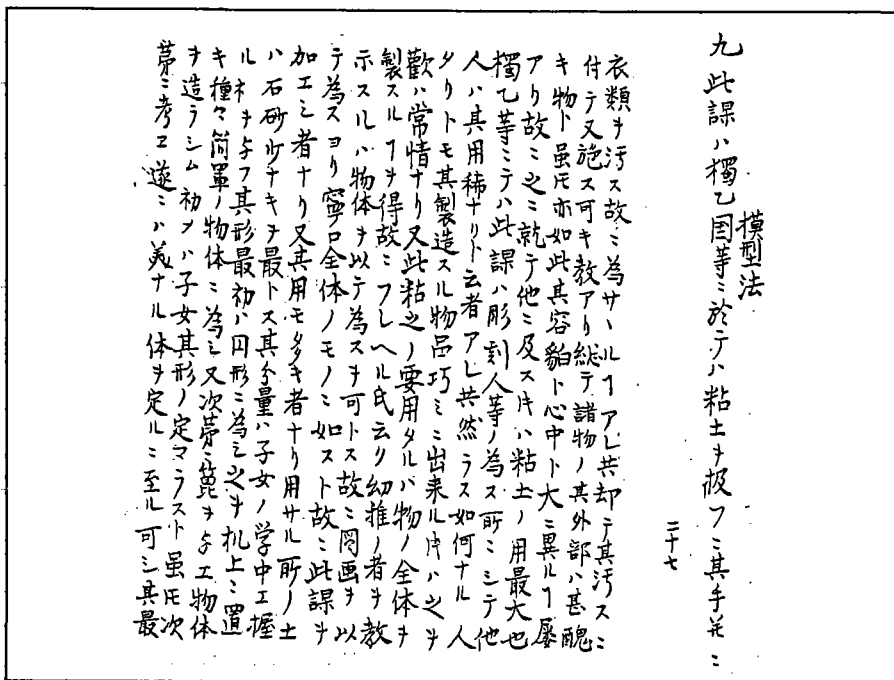 模型法
九此課ハ獨乙国等ニ於テハ粘土ヲ扱フニ其手并ニ
二十七
衣類ヲ汚ス故ニ為サヽルヿアレ共却テ其汚スニ
付テ又施ス可キ教アリ総テ諸物ノ其外部ハ甚醜
キ物ト虽𪜈亦如此其容貌ト心中ト大ニ異ルヿ屡
アリ故ニ之ニ就テ他ニ及ス片ハ粘土ノ用最大也
獨乙等ミテハ此課ハ彫刻人等ノ為ス所ニシテ他
人ハ其用稀ナリト云者アレ共然ラス如何ナル人
タリトモ其製造スル物品巧ミニ出来ル片ハ之ヲ
歡ハ常情ナリ又此粘土ノ要用タルハ物ノ全体ヲ
製スルヿヲ得故ニフレヘル氏云ク幼稚ノ者ヲ教
示スルハ物体ヲ以テ為スヲ可トス故ニ図画ヲ以
テ為スヨリ寧ロ全体ノモノニ如スト故ニ此課ヲ
加エシ者ナリ又其用モ多キ者ナリ用サル所ノ土
ハ石砂少ナキヲ最トス其分量ハ子女ノ学中エ握
ル木ヲ与フ其形最初ハ円形ニ為シ之ヲ机上ニ置
キ種々簡單ノ物体ニ為シ又次第ニ篦ヲ与エ物体
ヲ造ラシム初メハ子女其形ノ定マラスト虽𪜈次
第ニ考エ遂ニハ美ナル体ヲ定ルニ至ル可シ其最